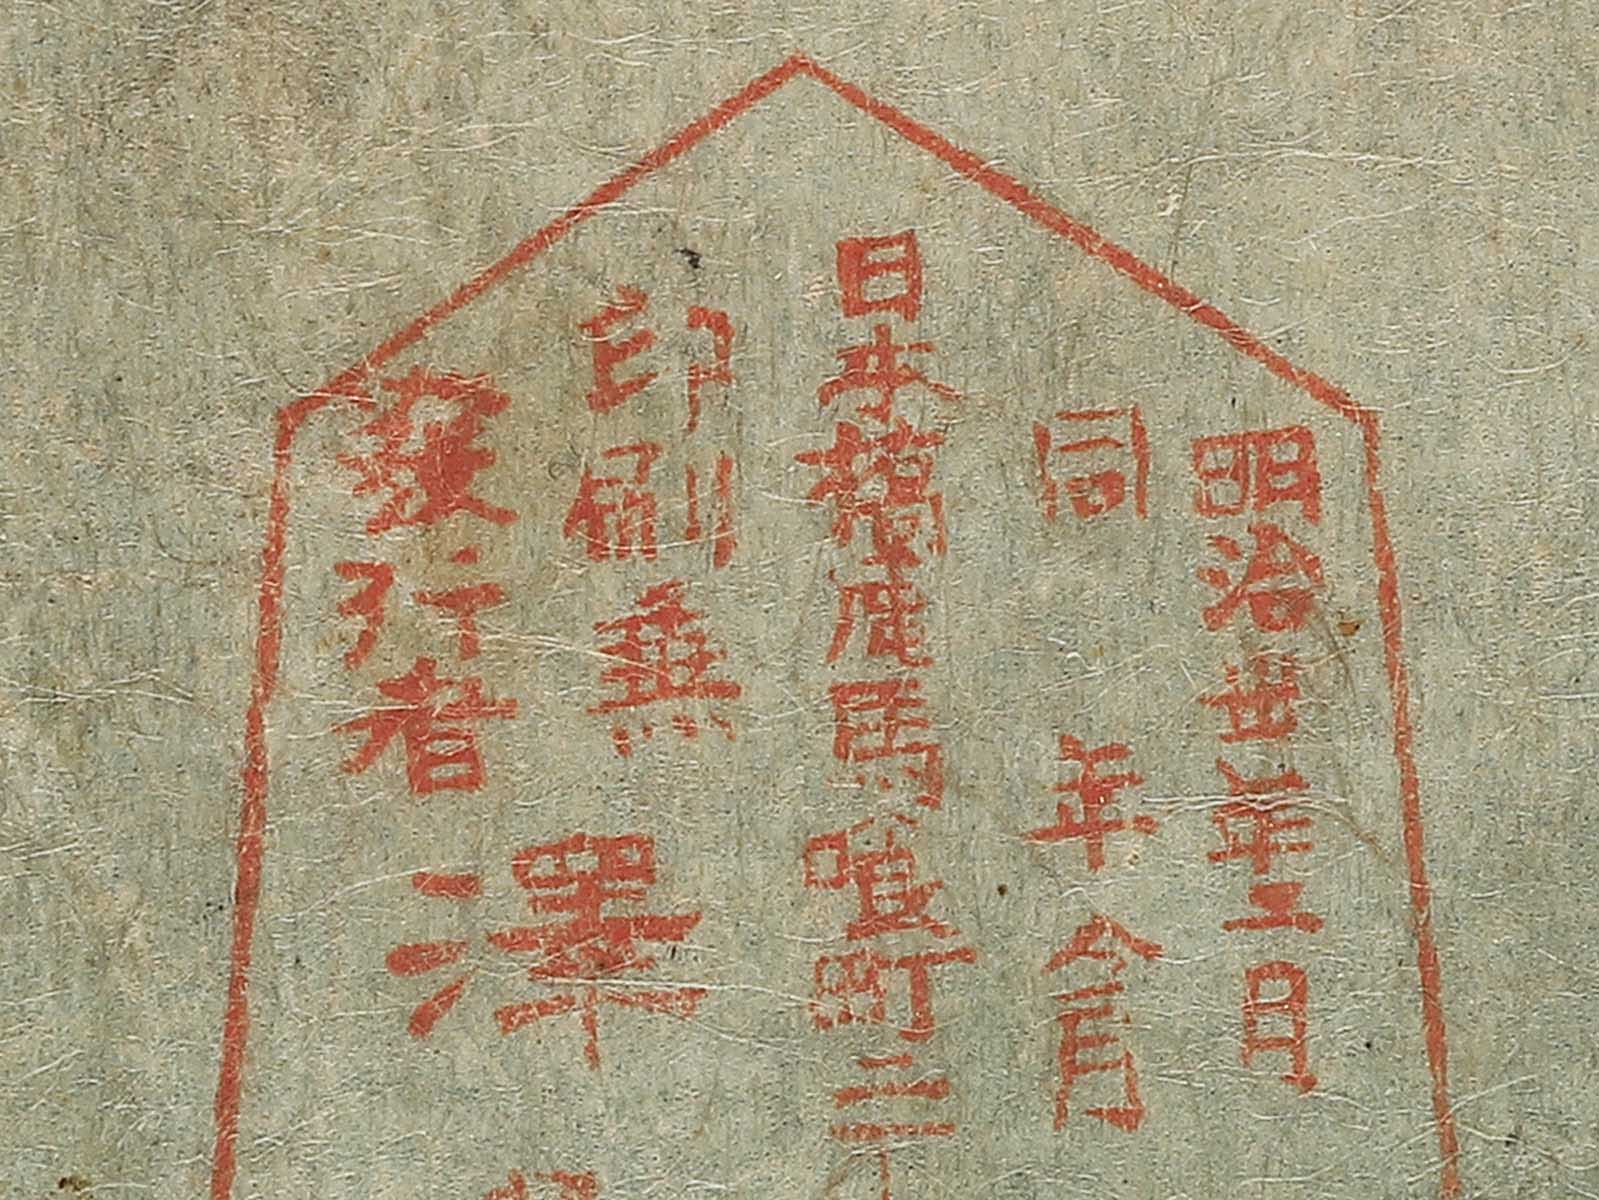 明治卅年工月
同年今月
日本橋区馬喰町二丁
印刷兼
發行者
澤